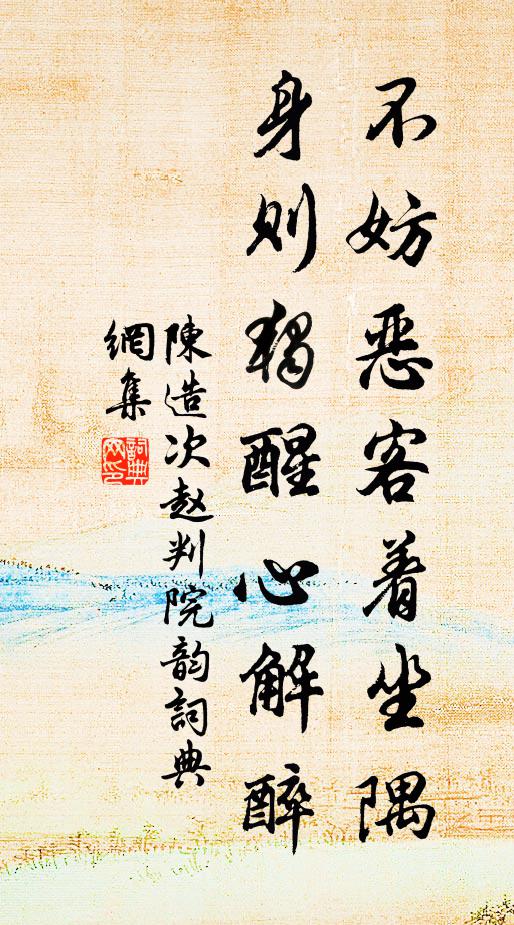 不妨恶客着坐隅
身则独醒心解醉
陳造次赵判院韵詞典
網集
詞典
网印